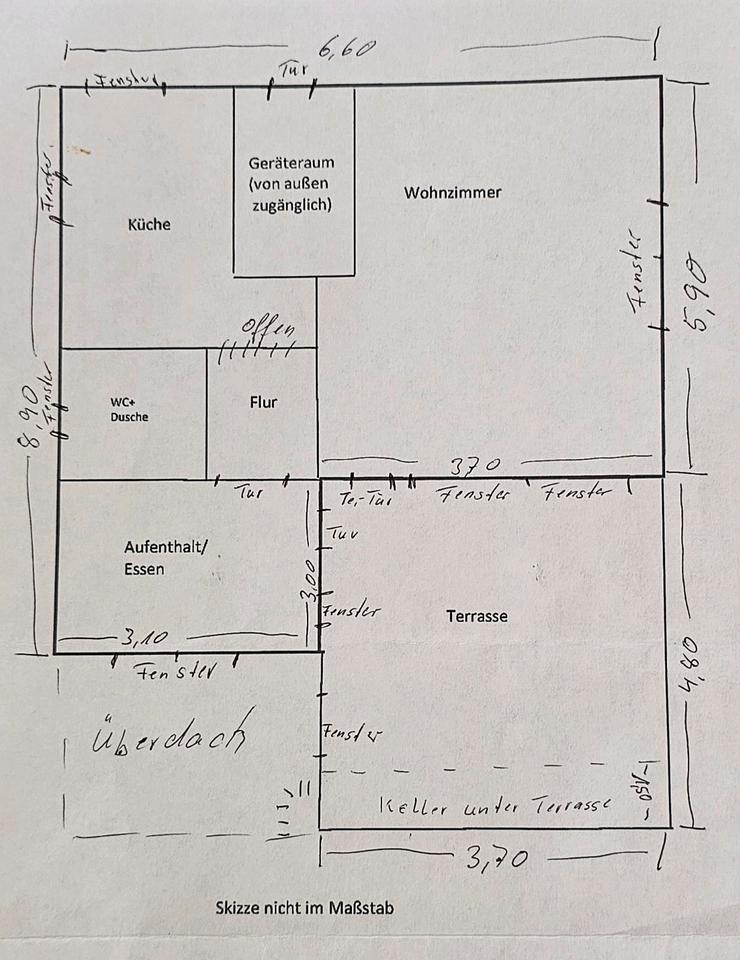 6,60
Fenster
Tür
Fenster
Geräteraum
(von außen
zugänglich)
Wohnzimmer
Küche
Fenster
5,90
Offen
WC+
Dusche
Flur
Fenster
8,90
370
Tür
Te,-Tür
Fenster
Fenster
Tür
Aufenthalt/
Essen
3,00
Fenster
Terrasse
3,10
Fenster
4,80
Überdach
Fenster
Keller unter Terrasse
3,70
Skizze nicht im Maßstab